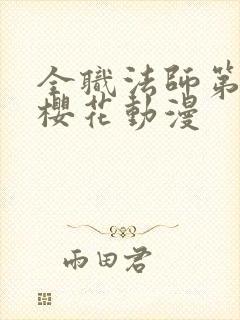 全職法師第
櫻花動漫
雨田君